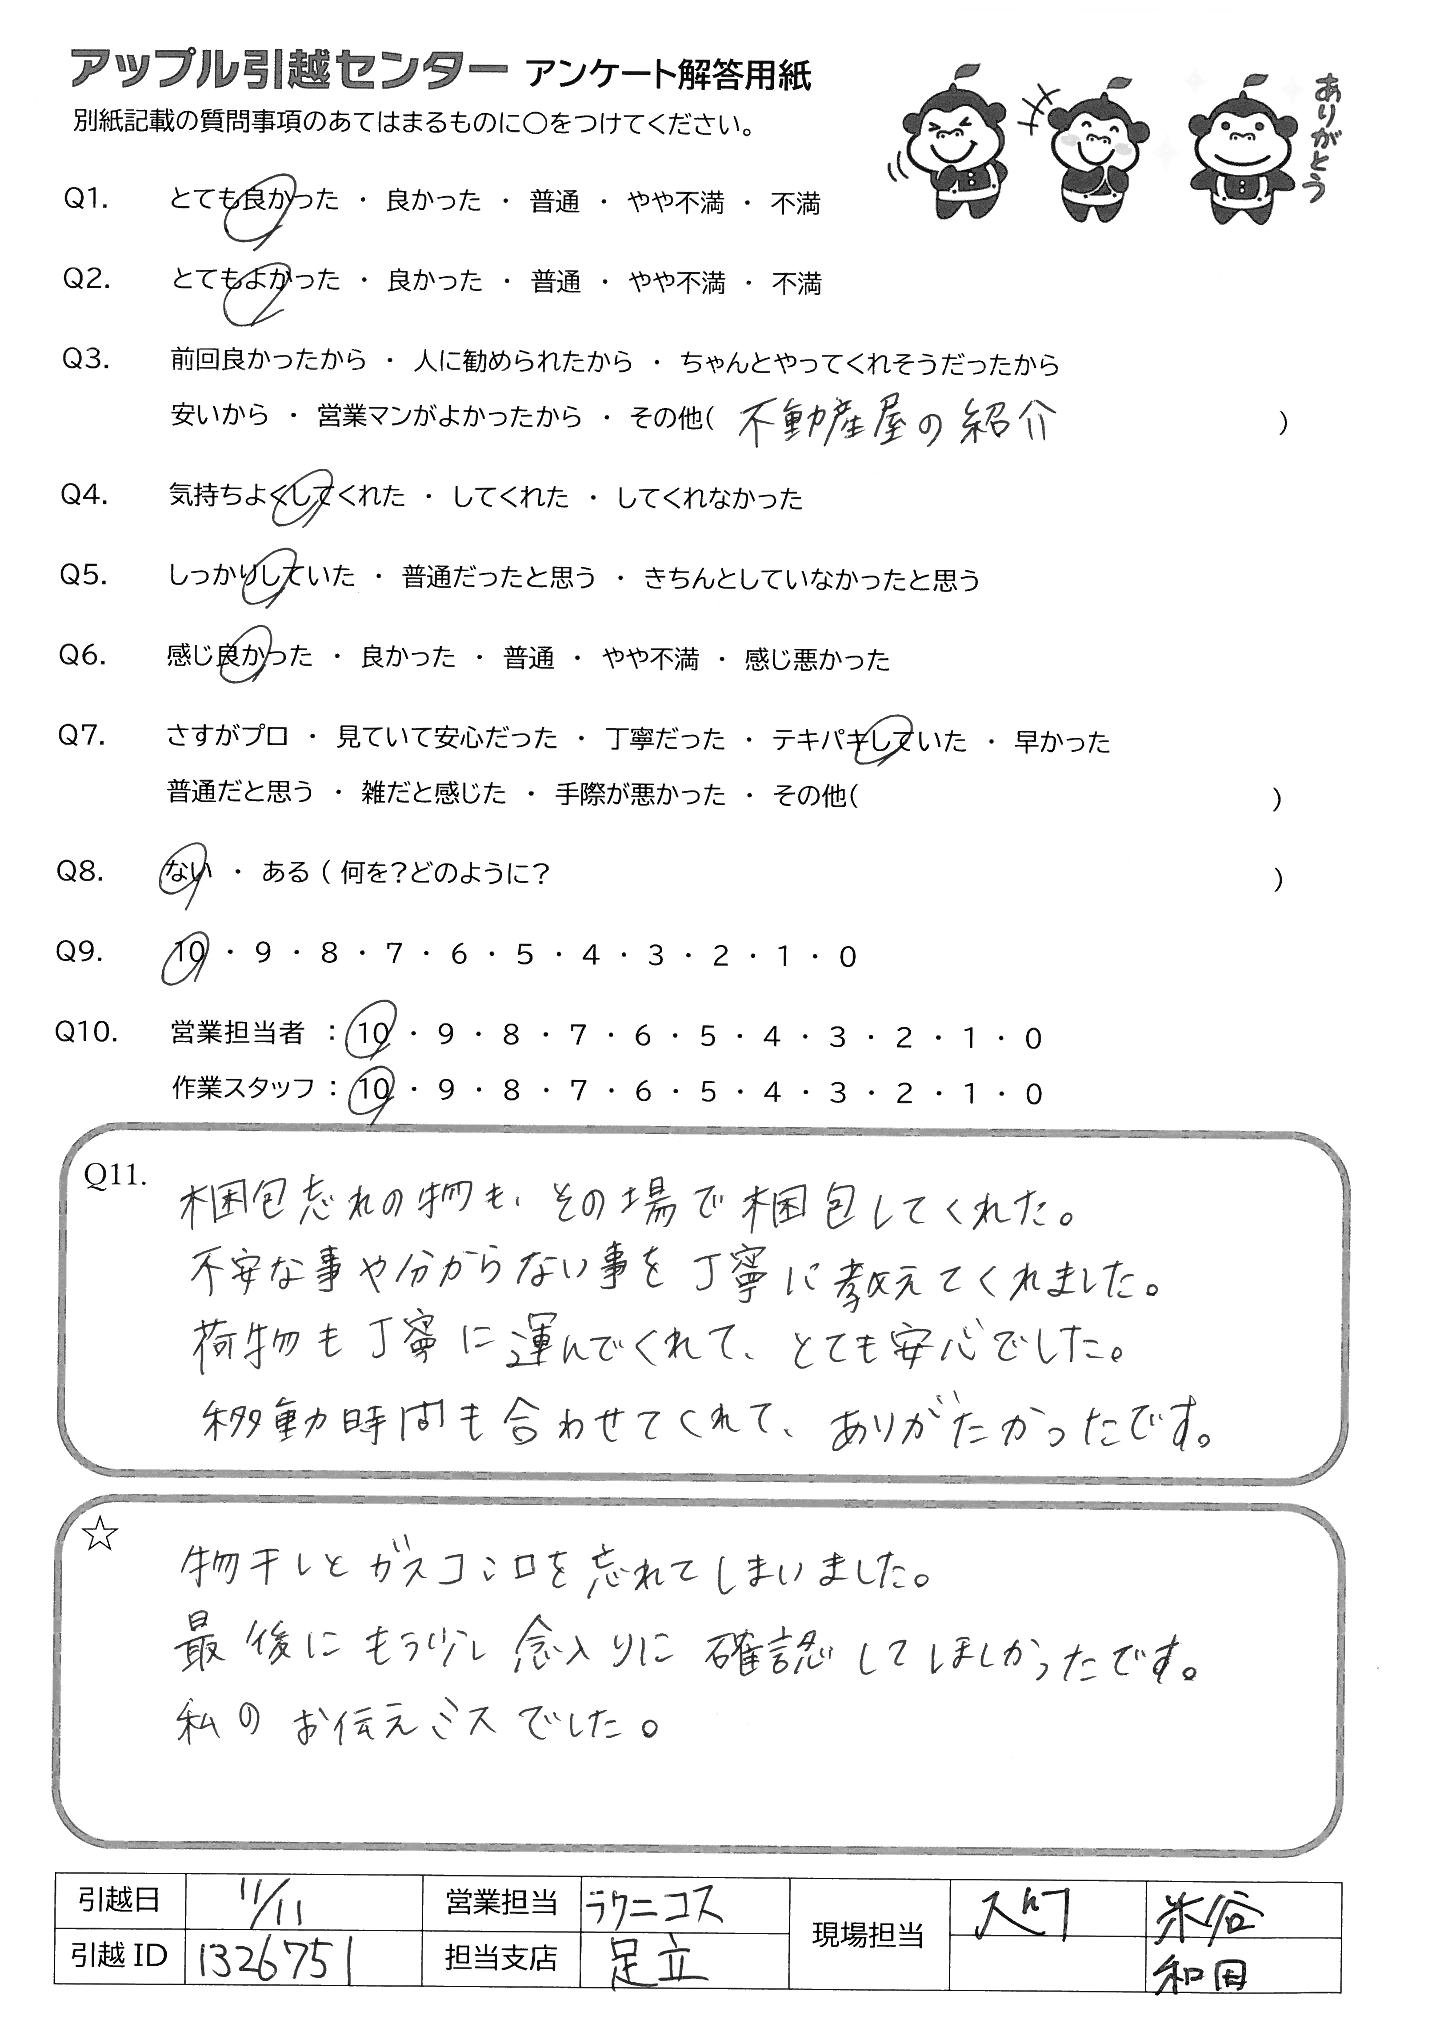 アップル引越センター アンケート解答用紙
別紙記載の質問事項のあてはまるものに○をつけてください。
ありがとう
Q1. とても良かった ・ 良かった ・ 普通 ・ やや不満 ・ 不満
Q2. とてもよかった ・ 良かった ・ 普通 ・ やや不満 ・ 不満
Q3. 前回良かったから ・ 人に勧められたから ・ ちゃんとやってくれそうだったから
安いから ・ 営業マンがよかったから ・ その他( 不動産屋の紹介 )
Q4. 気持ちよくしてくれた ・ してくれた ・ してくれなかった
Q5. しっかりしていた ・ 普通だったと思う ・ きちんとしていなかったと思う
Q6. 感じ良かった ・ 良かった ・ 普通 ・ やや不満 ・ 感じ悪かった
Q7. さすがプロ ・ 見ていて安心だった ・ 丁寧だった ・ テキパキしていた ・ 早かった
普通だと思う ・ 雑だと感じた ・ 手際が悪かった ・ その他( )
Q8. ない ・ ある ( 何を?どのように? )
Q9. 10 ・ 9 ・ 8 ・ 7 ・ 6 ・ 5 ・ 4 ・ 3 ・ 2 ・ 1 ・ 0
Q10. 営業担当者 : 10 ・ 9 ・ 8 ・ 7 ・ 6 ・ 5 ・ 4 ・ 3 ・ 2 ・ 1 ・ 0
作業スタッフ : 10 ・ 9 ・ 8 ・ 7 ・ 6 ・ 5 ・ 4 ・ 3 ・ 2 ・ 1 ・ 0
Q11.
梱包忘れの物も、その場で梱包してくれた。
不安な事や分からない事を丁寧に教えてくれました。
荷物も丁寧に運んでくれて、とても安心でした。
移動時間も合わせてくれて、ありがたかったです。
☆
物干しとガスコンロを忘れてしまいました。
最後にもう少し念入りに確認してほしかったです。
私のお伝えミスでした。
引越日 11/11 営業担当 ラクニコス 現場担当 米谷
引越ID 1326751 担当支店 足立 和田